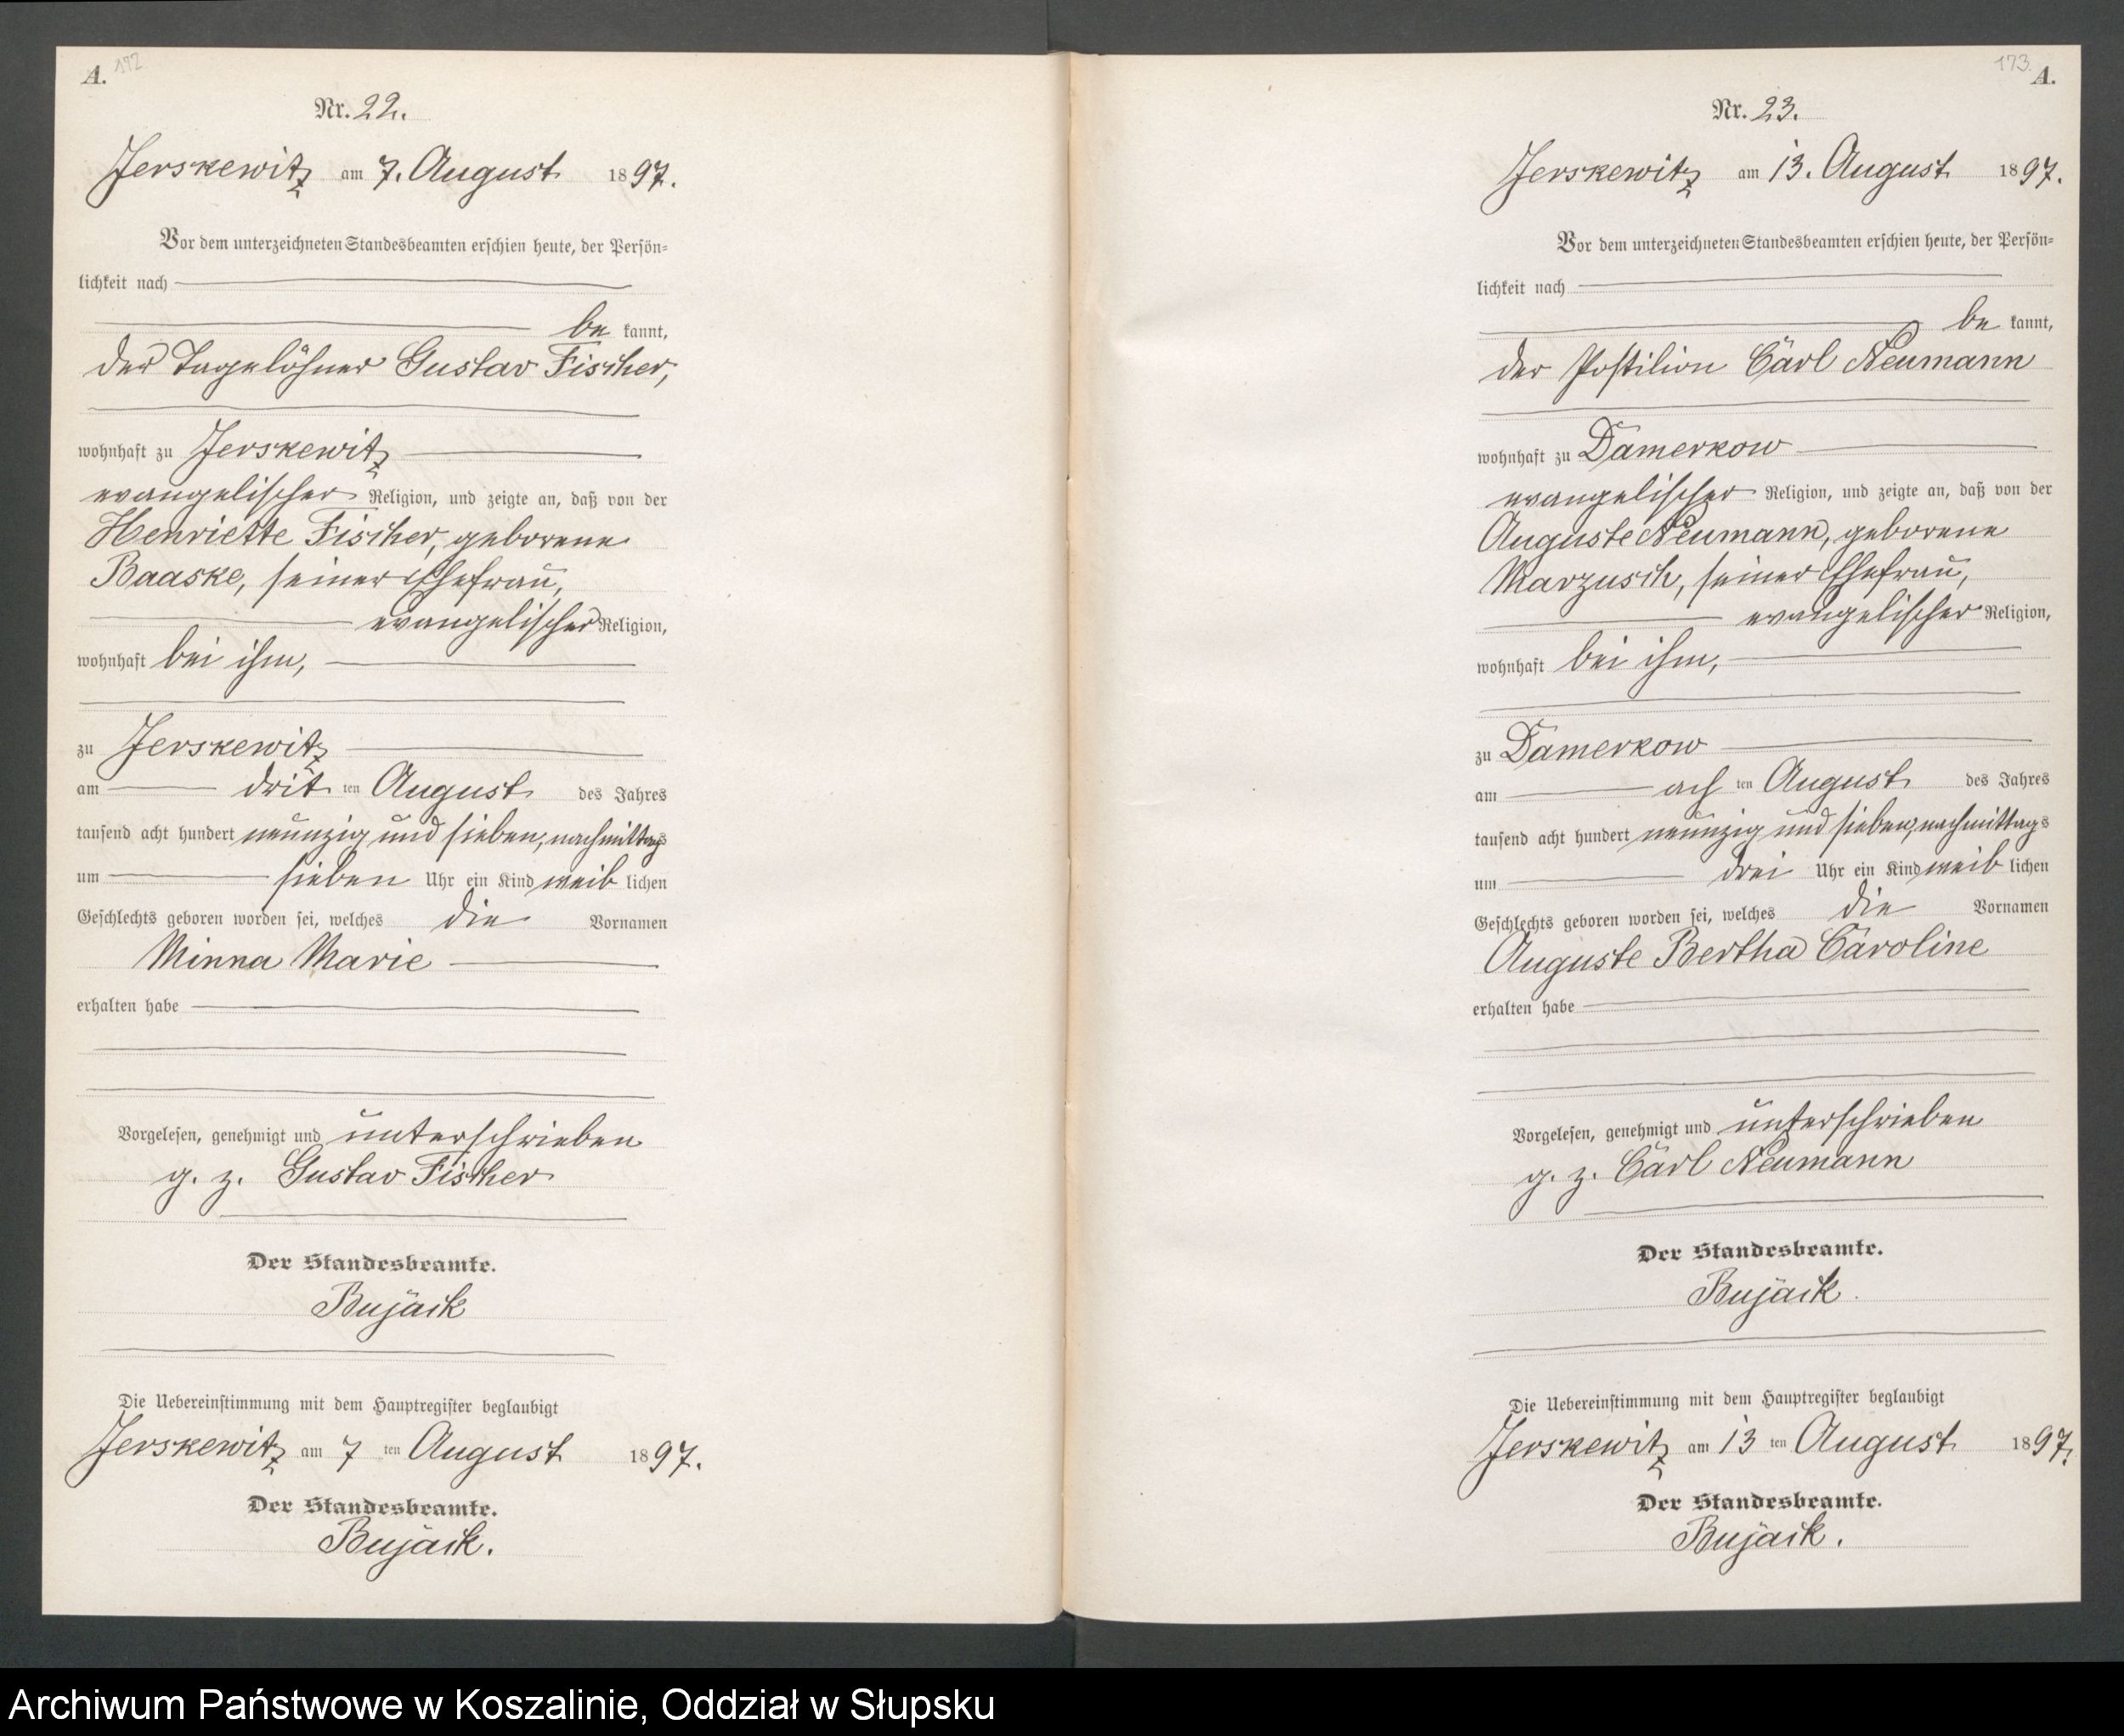 A.
Nr. 22.
Jerskewitz am 7. August 1897.
Vor dem unterzeichneten Standesbeamten erschien heute, der Persön-
lichkeit nach
be kannt,
der Tagelöhner Gustav Fischer,
wohnhaft zu Jerskewitz
evangelischer Religion, und zeigte an, daß von der
Henriette Fischer, geborene
Baaske, seiner Ehefrau,
evangelischer Religion,
wohnhaft bei ihm,
zu Jerskewitz
am drit ten August des Jahres
tausend acht hundert neunzig und sieben, nachmittags
um sieben Uhr ein Kind weib lichen
Geschlechts geboren worden sei, welches die Vornamen
Minna Marie
erhalten habe
Vorgelesen, genehmigt und unterschrieben
g. z. Gustav Fischer
Der Standesbeamte.
Bujack
Die Uebereinstimmung mit dem Hauptregister beglaubigt
Jerskewitz am 7 ten August 1897.
Der Standesbeamte.
Bujack.
173. A.
Nr. 23.
Jerskewitz am 13. August 1897.
Vor dem unterzeichneten Standesbeamten erschien heute, der Persön-
lichkeit nach
be kannt,
der Postilion Carl Neumann
wohnhaft zu Damerkow
evangelischer Religion, und zeigte an, daß von der
Auguste Neumann, geborene
Marzusch, seiner Ehefrau,
evangelischer Religion,
wohnhaft bei ihm,
zu Damerkow
am ach ten August des Jahres
tausend acht hundert neunzig und sieben, nachmittags
um drei Uhr ein Kind weib lichen
Geschlechts geboren worden sei, welches die Vornamen
Auguste Bertha Caroline
erhalten habe
Vorgelesen, genehmigt und unterschrieben
g. z. Carl Neumann
Der Standesbeamte.
Bujack
Die Uebereinstimmung mit dem Hauptregister beglaubigt
Jerskewitz am 13 ten August 1897.
Der Standesbeamte.
Bujack.
Archiwum Państwowe w Koszalinie, Oddział w Słupsku